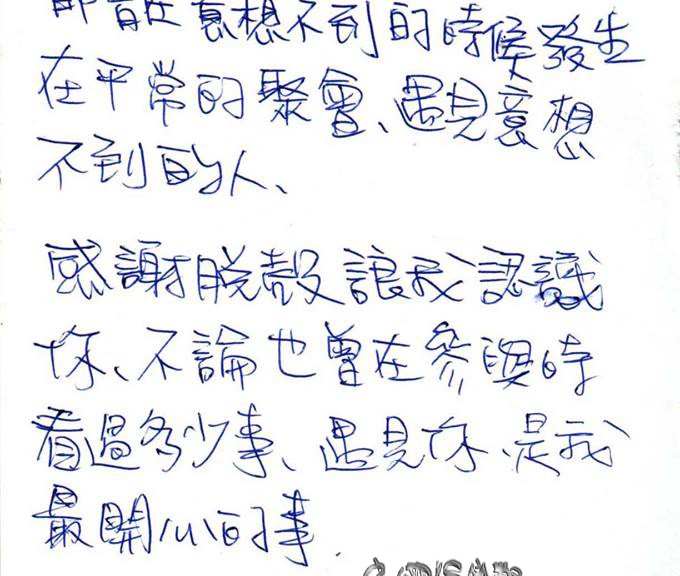 都會在意想不到的時候發生
在平常的聚會、遇見意想
不到的人、
感謝脫殼讓我認識
你、不論也曾在參與時
看過多少事、遇見你、是我
最開心的事.